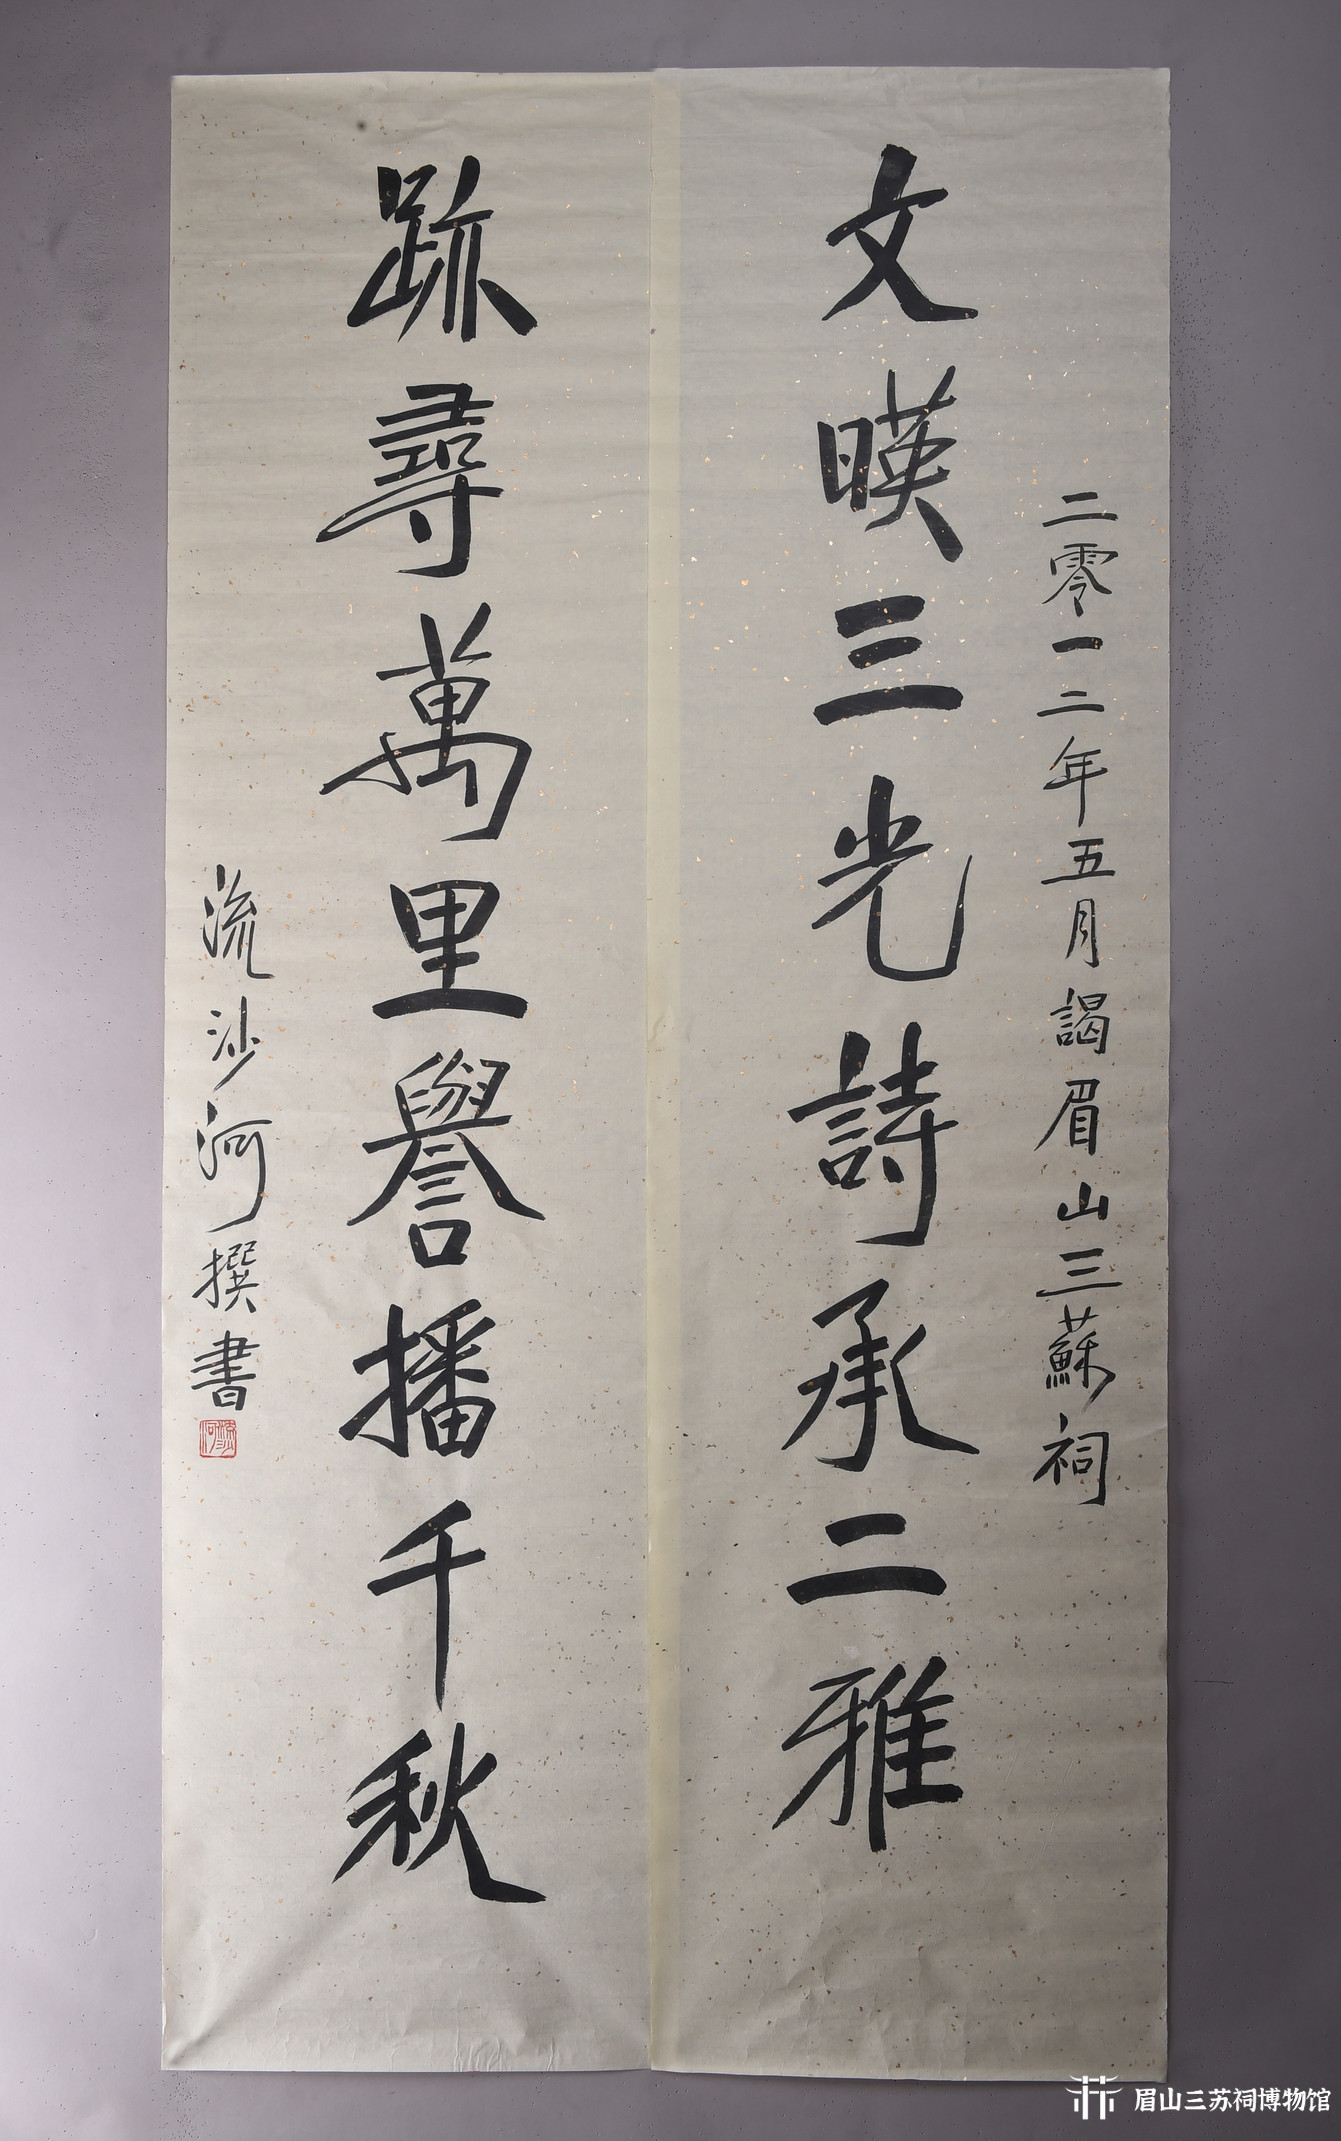 二零一二年五月謁眉山三蘇祠
文暎三光詩承二雅
跡尋萬里譽播千秋
流沙河撰書
流沙河
眉山三苏祠博物馆